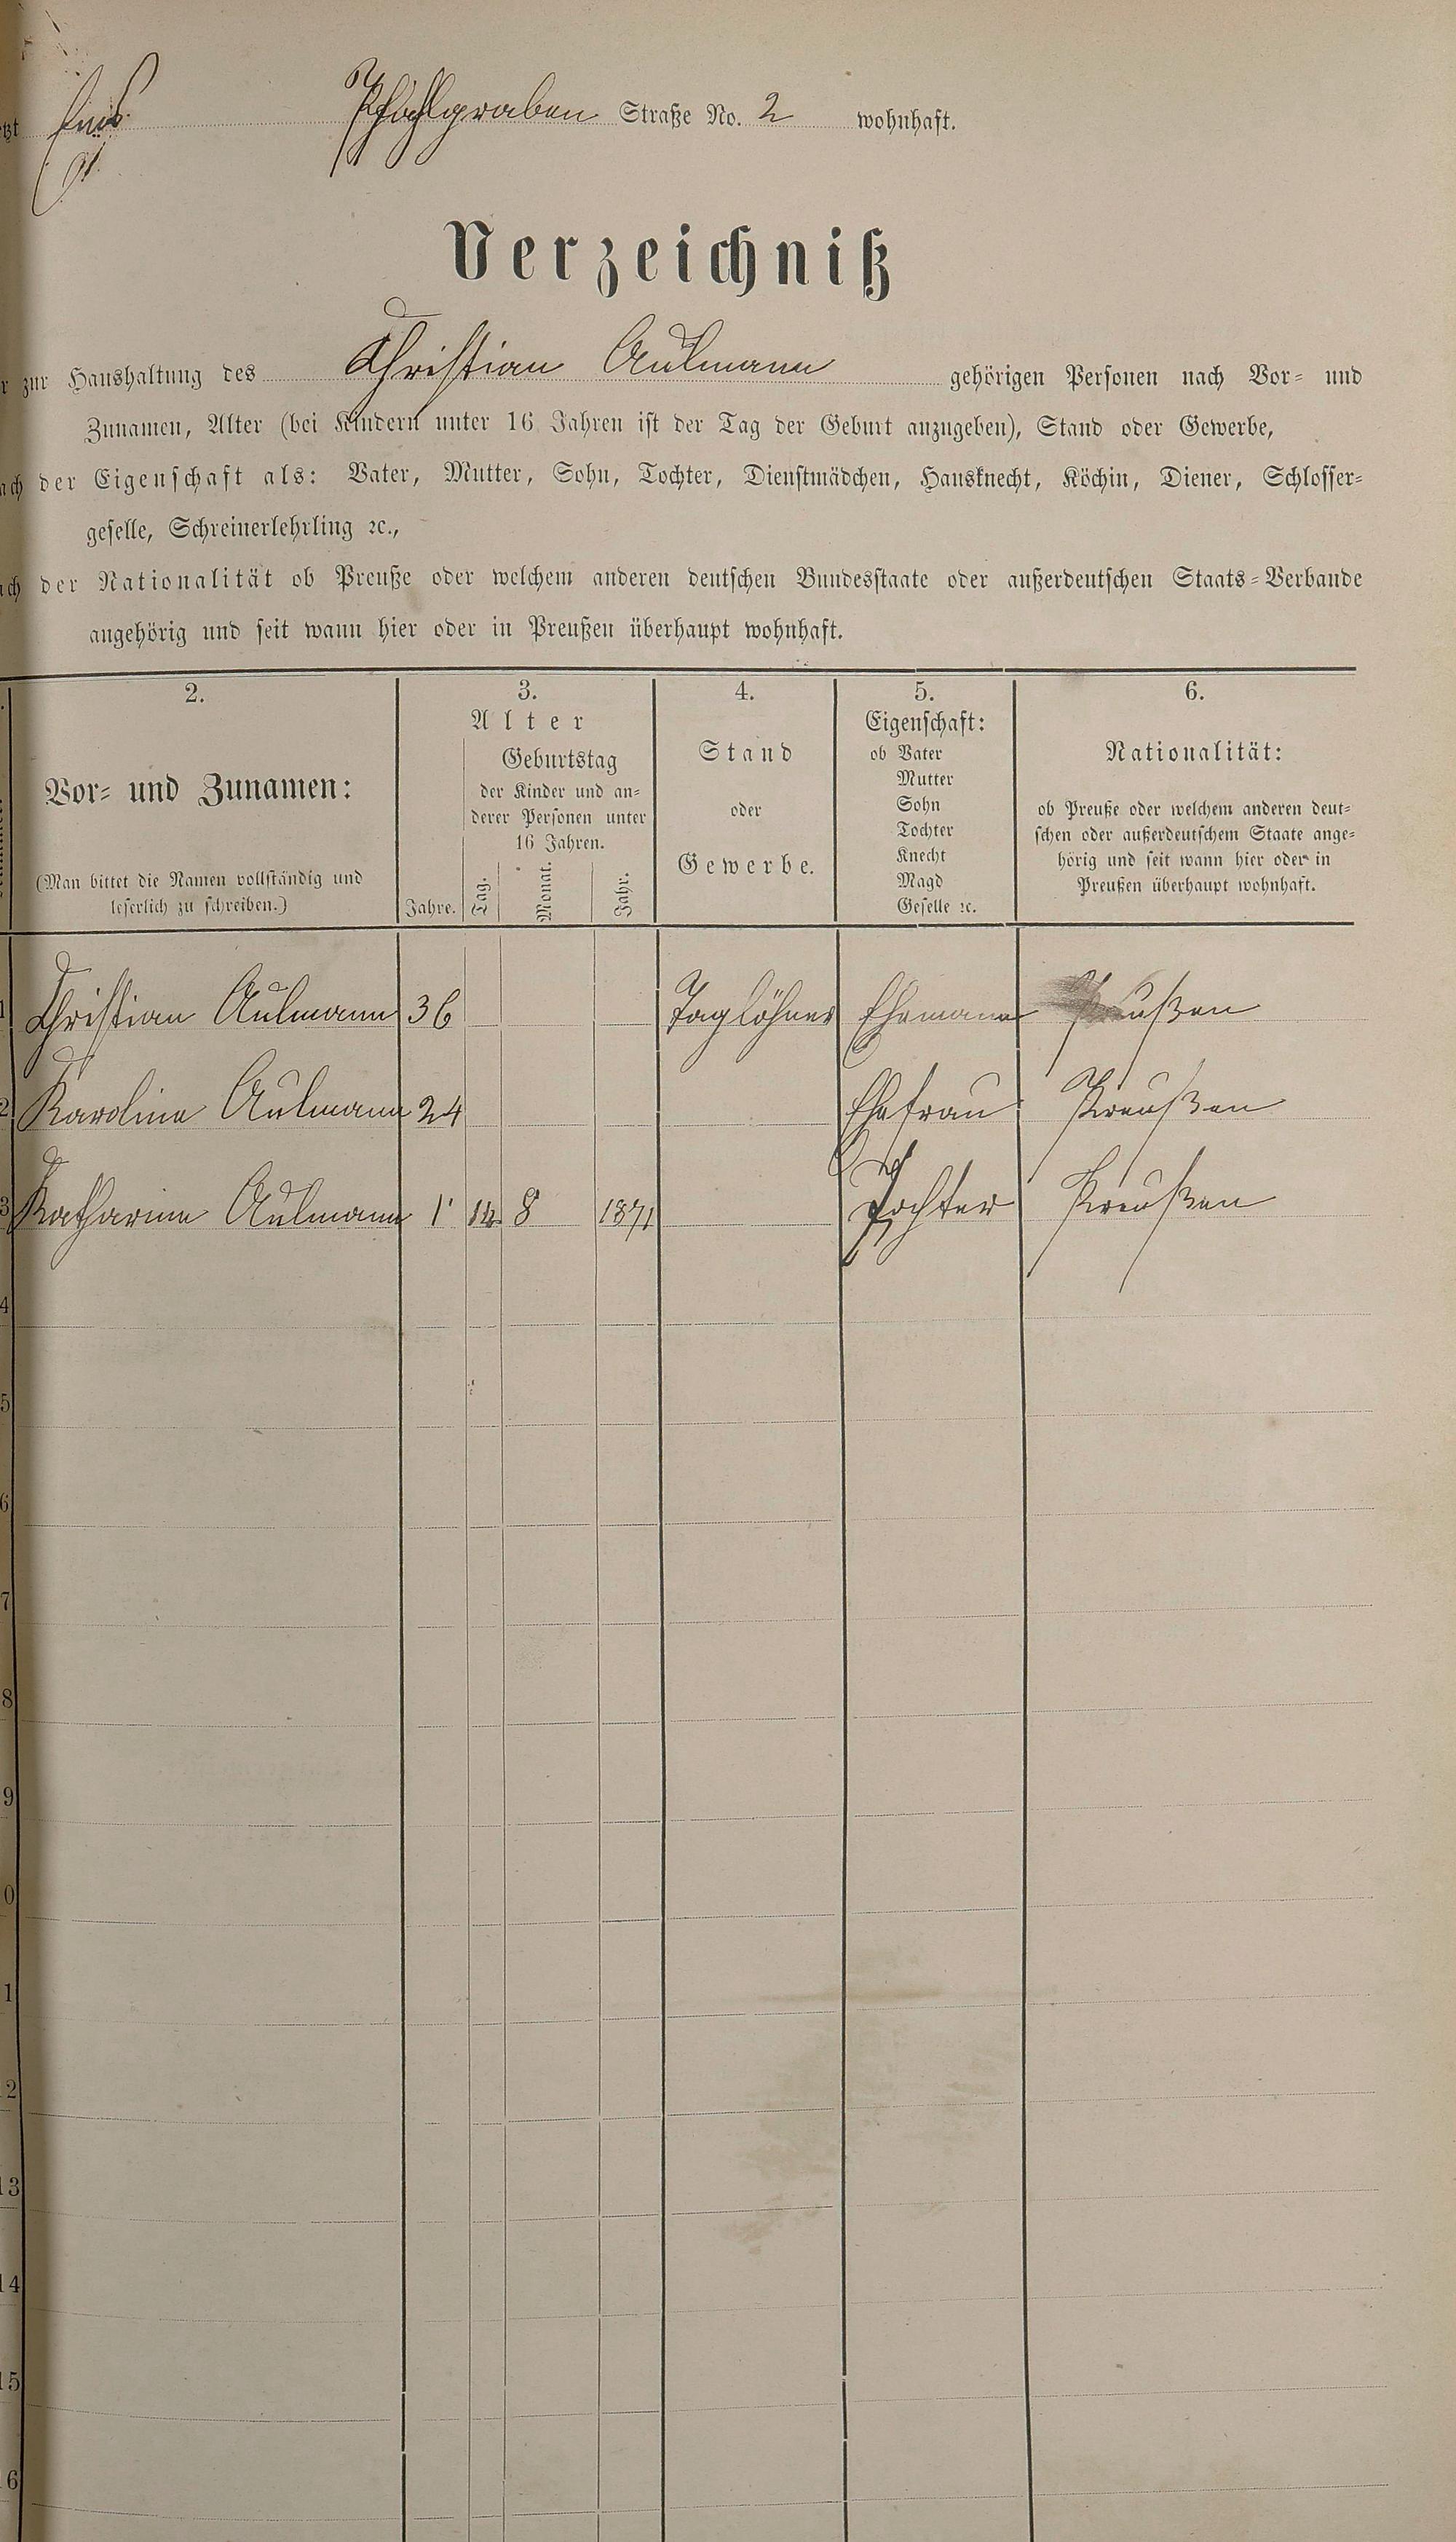 Pfahlgraben Straße No. 2 wohnhaft.
Verzeichniß
zur Haushaltung des Christian Aulmann gehörigen Personen nach Vor- und
Zunamen, Alter (bei Kindern unter 16 Jahren ist der Tag der Geburt anzugeben), Stand oder Gewerbe,
der Eigenschaft als: Vater, Mutter, Sohn, Tochter, Dienstmädchen, Hausknecht, Köchin, Diener, Schlosser-
geselle, Schreinerlehrling ꝛc.,
der Nationalität ob Preuße oder welchem anderen deutschen Bundesstaate oder außerdeutschen Staats-Verbande
angehörig und seit wann hier oder in Preußen überhaupt wohnhaft.
2. 3. 4. 5. 6.
Vor- und Zunamen:
(Man bittet die Namen vollständig und
leserlich zu schreiben.)
Alter
Jahre.
Geburtstag
der Kinder und an-
derer Personen unter
16 Jahren.
Tag. Monat. Jahr.
Stand
oder
Gewerbe.
Eigenschaft:
ob Vater
Mutter
Sohn
Tochter
Knecht
Magd
Geselle ꝛc.
Nationalität:
ob Preuße oder welchem anderen deut-
schen oder außerdeutschem Staate ange-
hörig und seit wann hier oder in
Preußen überhaupt wohnhaft.
1 Christian Aulmann 36 Taglöhner Ehemann Preußen
2 Karolina Aulmann 24 Ehefrau Preußen
3 Katharina Aulmann 1 8 1871 Tochter Preußen
4
5
6
7
8
9
0
1
2
13
14
15
6